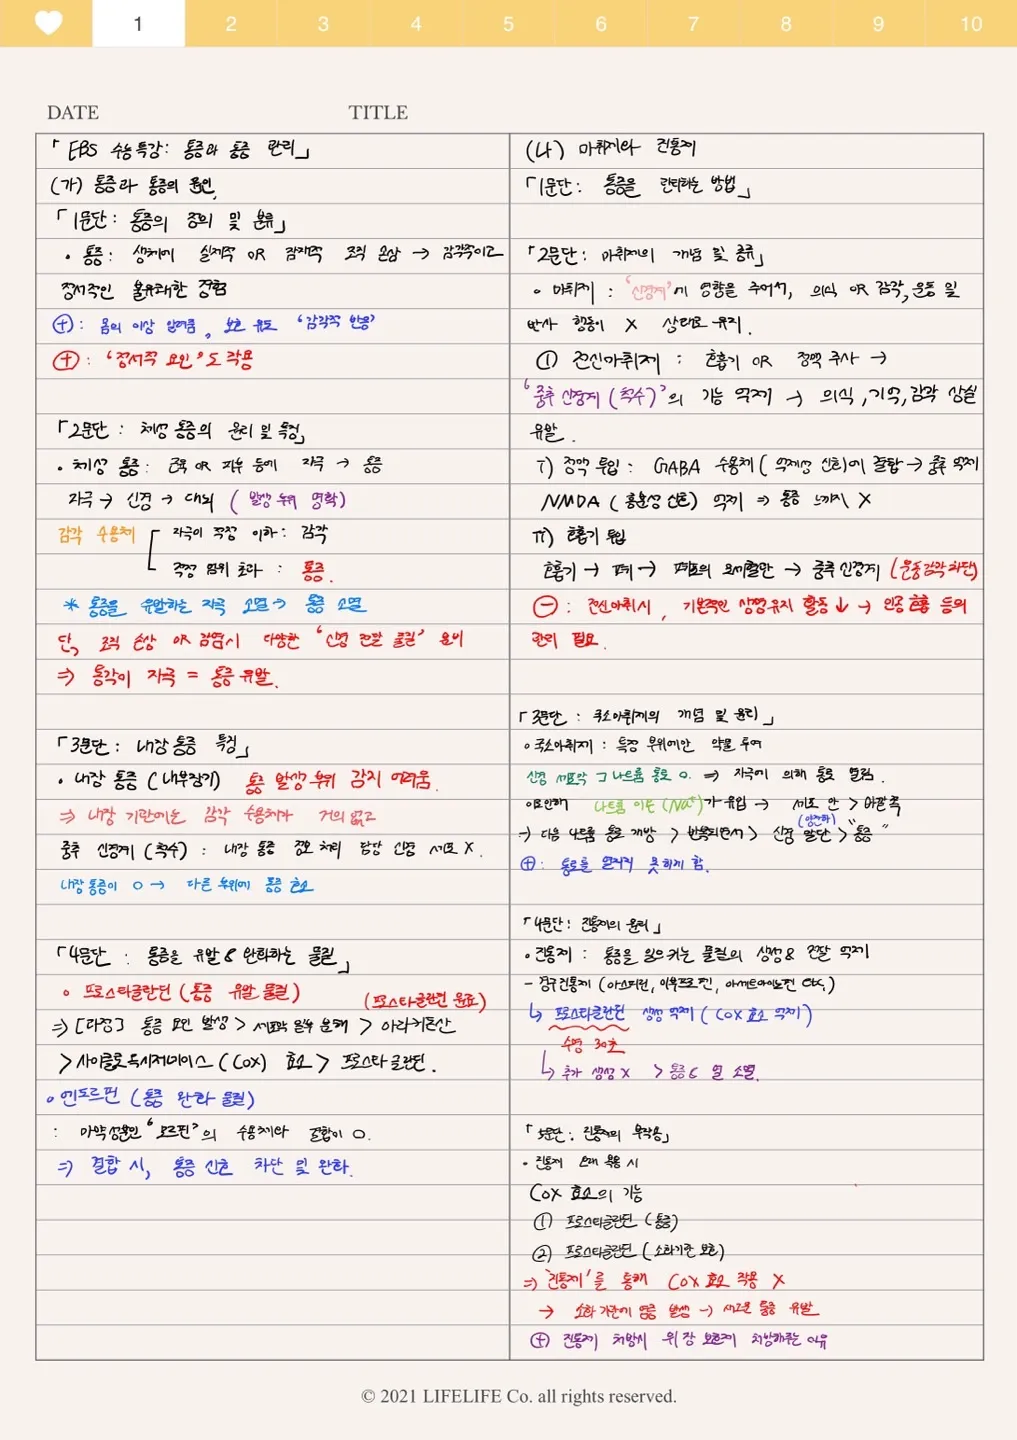 1 2 3 4 5 6 7 8 9 10
DATE TITLE
「EBS 수능특강: 통증과 통증 관리」
(가) 통증과 통증의 원인
「1문단: 통증의 정의 및 분류」
• 통증: 생체에 실제적 OR 잠재적 조직 손상 → 감각적이고
정서적인 불유쾌한 경험
⊕: 몸의 이상 알려줌, 보호 유도 '감각적 반응'
⊕: '정서적 요인'도 작용
「2문단: 체성 통증의 원리 및 특징」
• 체성 통증: 근육 OR 피부 등에 자극 → 통증
자극 → 신경 → 대뇌 (발생 부위 명확)
감각 수용체 [ 자극이 적정 이하: 감각
적정 범위 초과: 통증.
* 통증을 유발하는 자극 소멸 → 통증 소멸
단, 조직 손상 OR 감염시 다양한 '신경 전달 물질' 분비
⇒ 통각이 자극 = 통증 유발.
「3문단: 내장 통증 특징」
• 내장 통증 (내부장기) 통증 발생 부위 감지 어려움.
⇒ 내장 기관에는 감각 수용체가 거의 없고
중추 신경계 (척수): 내장 통증 정보 처리 담당 신경 세포 X.
내장 통증이 O → 다른 부위에 통증 호소
「4문단: 통증을 유발 & 완화하는 물질」
• 프로스타글란딘 (통증 유발 물질) (프로스타글란딘 원료)
⇒ [과정] 통증 요인 발생 > 세포막 일부 분해 > 아라키돈산
> 사이클로옥시제네이스 (Cox) 효소 > 프로스타글란딘.
• 엔도르핀 (통증 완화 물질)
: 마약성분인 "모르핀"의 수용체와 결합이 O.
⇒ 결합 시, 통증 신호 차단 및 완화.
(나) 마취제와 진통제
「1문단: 통증을 관리하는 방법」
「2문단: 마취제의 개념 및 종류」
• 마취제: '신경계'에 영향을 주어서, 의식 OR 감각, 운동 및
반사 행동이 X 상태로 유지.
① 전신마취제: 흡입기 OR 정맥 주사 →
'중추 신경계 (척수)'의 기능 억제 → 의식, 기억, 감각 상실
유발.
I) 정맥 투입: GABA 수용체 (억제성 신호)에 결합 → 중추 억제
NMDA (흥분성 신호) 억제 ⇒ 통증 느끼지 X
II) 호흡기 투입
호흡기 → 폐 → 폐포의 모세혈관 → 중추 신경계 (운동감각 차단)
⊖: 전신마취시, 기본적인 생명유지 활동 ↓ → 인공 호흡 등의
관리 필요.
「3문단: 국소마취제의 개념 및 원리」
• 국소마취제: 특정 부위에만 약물 투여
신경 세포막 그 나트륨 통로 O. ⇒ 자극에 의해 통로 열림.
이로인해 나트륨 이온 (Na⁺)가 유입 → 세포 안 > 바깥쪽
(양전하)
→ 다음 나트륨 통로 개방 > 반복되면서 > 신경 말단 > "통증"
⊕: 통로를 열리지 못하게 함.
「4문단: 진통제의 원리」
• 진통제: 통증을 일으키는 물질의 생성 & 전달 억제
- 경구진통제 (아스피린, 이부프로펜, 아세트아미노펜 etc.)
↳ 프로스타글란딘 생성 억제 (Cox 효소 억제)
수명 30초
↳ 추가 생성 X > 통증 & 열 소멸.
「5문단: 진통제의 부작용」
• 진통제 오래 복용 시
Cox 효소의 기능
① 프로스타글란딘 (통증)
② 프로스타글란딘 (소화기관 보호)
⇒ '진통제'를 통해 Cox 효소 작용 X
→ 소화 기관에 염증 발생 → 새로운 통증 유발
⊕ 진통제 처방시 위장 보호제 처방해주는 이유
© 2021 LIFELIFE Co. all rights reserved.